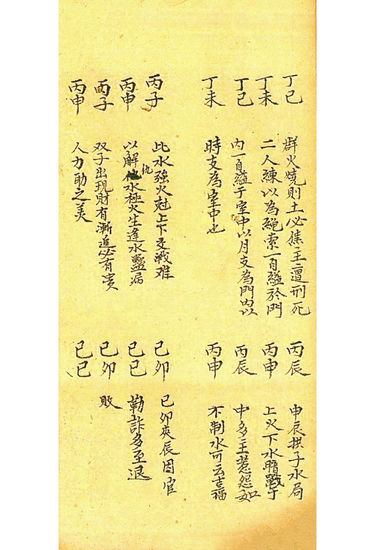 丁巳 群火燒則土必焦主遭刑死
丁未 二人練以為繩索一自縊於門
丁巳 內一自縊于室中以月支為門內以
丁未 時支為室中也
丙子 此水強火尅上下交戰难
丙申 以解仇水極火生逢水盤局
丙子 双子出現財有漸進必有贵
丙申 人力助之美
丙辰 申辰拱子水局
丙申 上火下水暗戰于
丙辰 中多主惹怨如
丙申 不制水可云吉福
己卯 己卯夾辰因官
己巳 勒詐多至退
己卯 敗
己巳